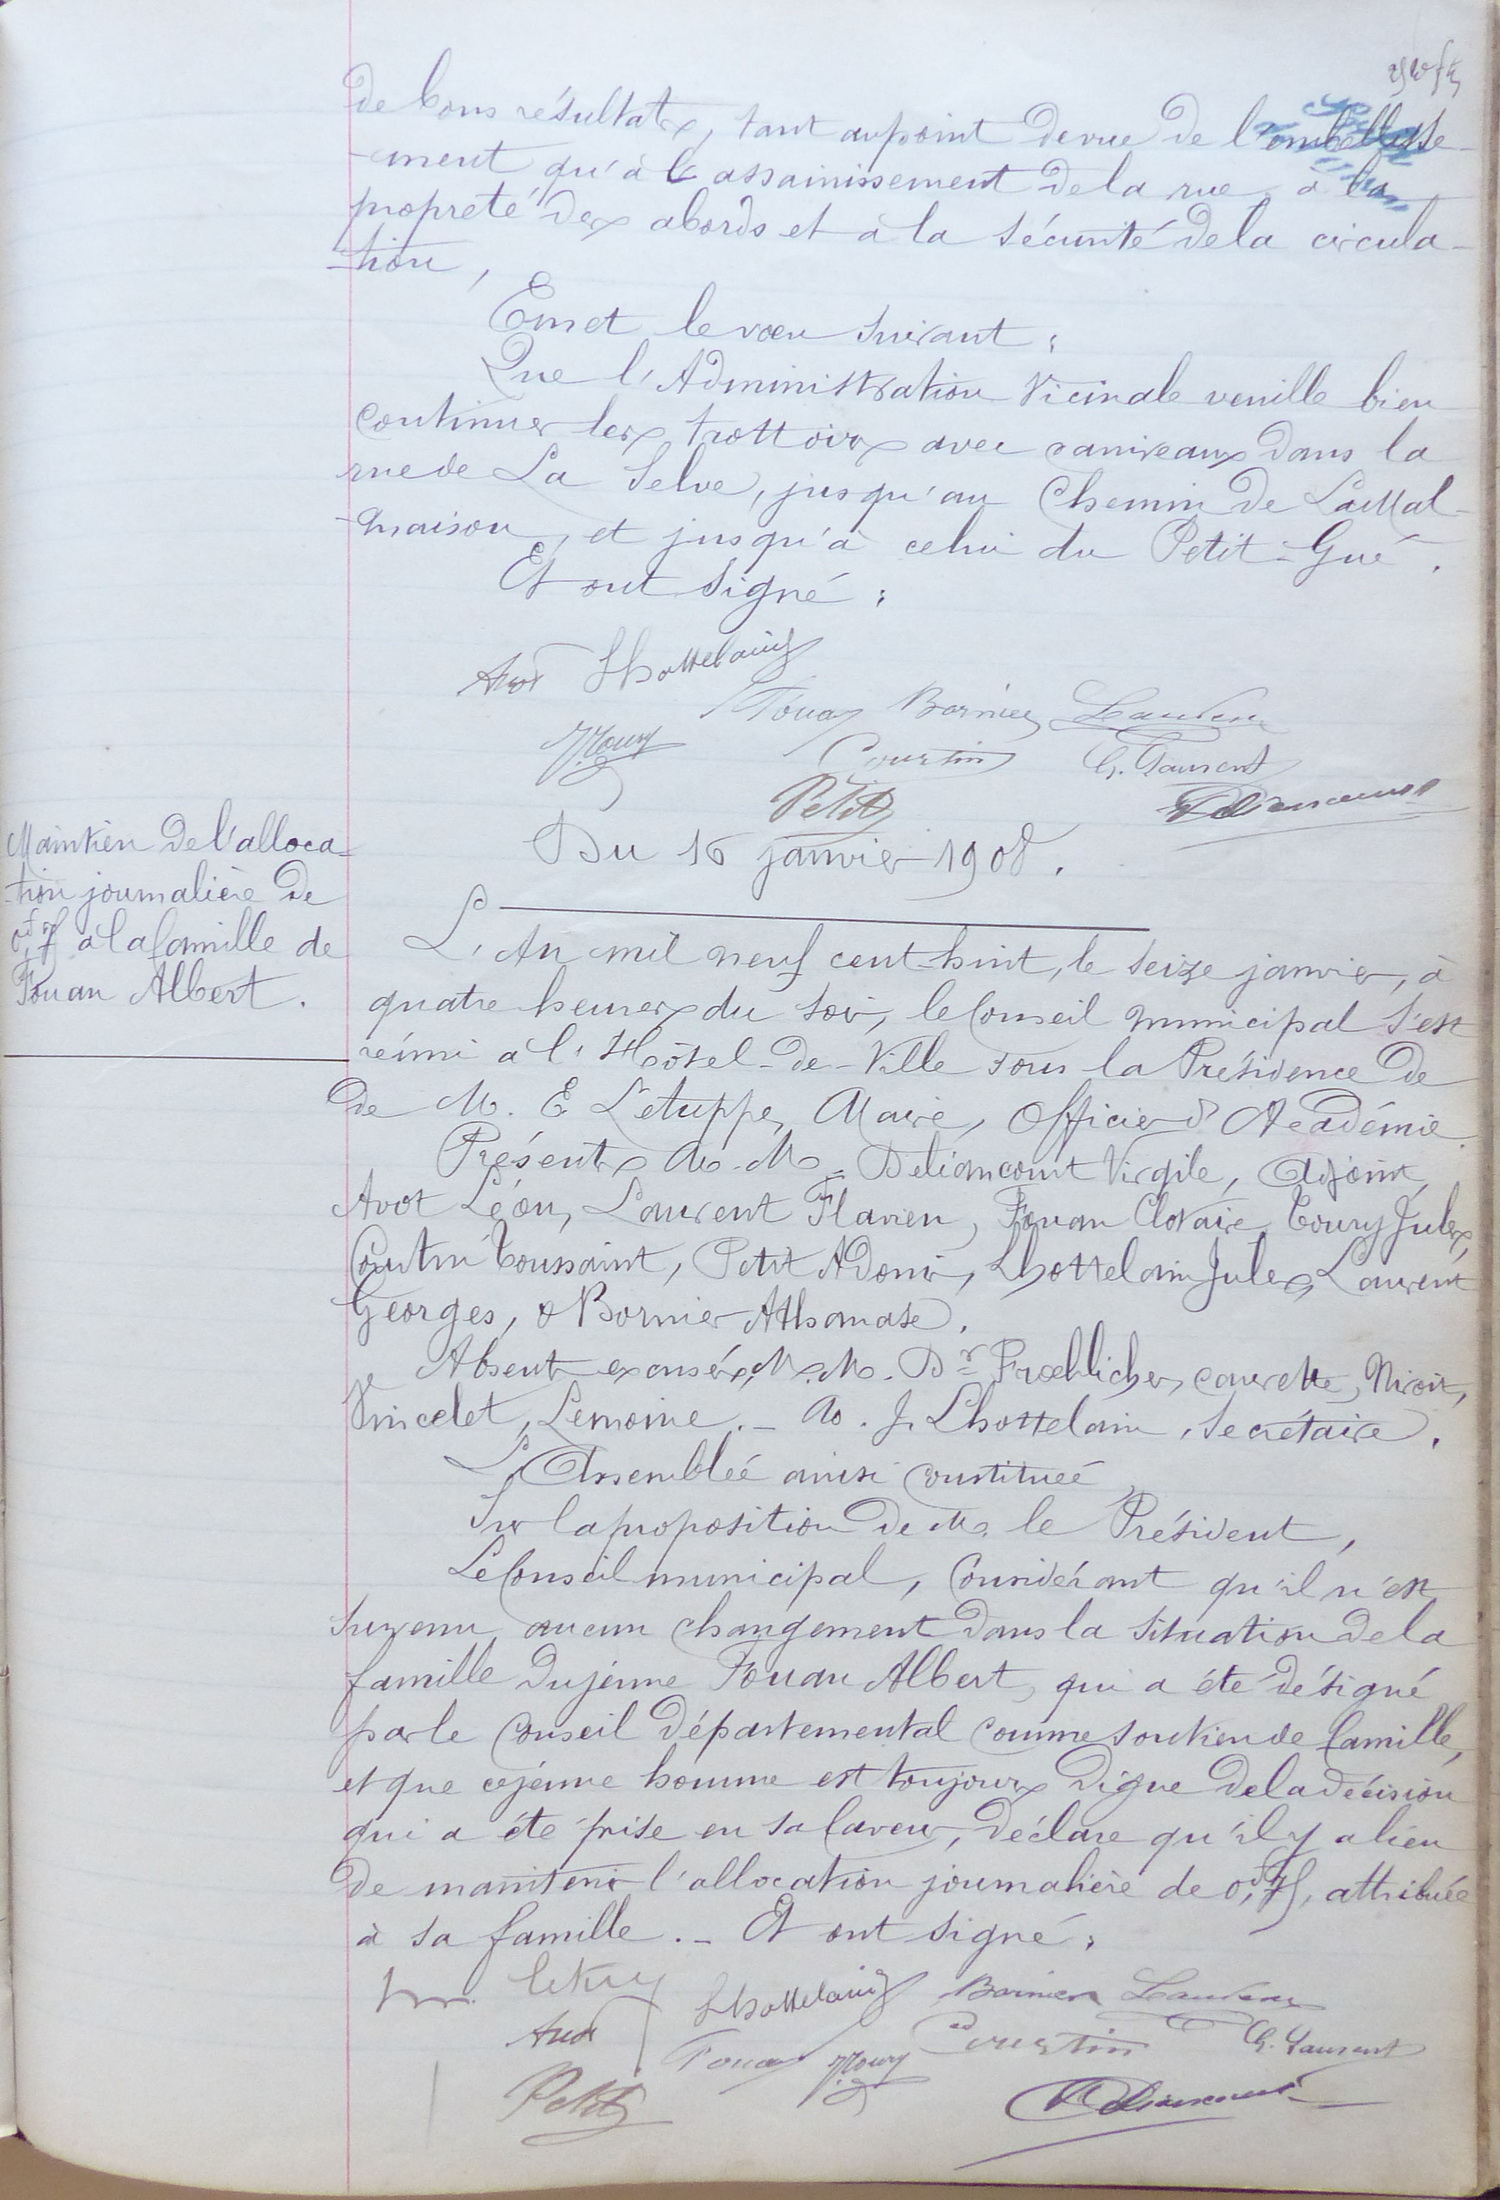 de bons résultats, tant au point de vue de l'embellisse-
-ment qu'à l'assainissement de la rue, à la
propreté des abords et à la sécurité de la circula-
-tion,
Emet le vœu suivant :
Que l'Administration Vicinale veuille bien
continuer les trottoirs avec caniveaux dans la
rue de La Selve, jusqu'au Chemin de LaMal-
-maison, et jusqu'à celui du Petit-Gué.
Et ont signé :
Avot Lhottelain
Fouan Bornier Laurent
J. Toury Courtin G. Laurent
Petit Deliancourt
Du 16 janvier 1908.
Maintien de l'alloca-
-tion journalière de
à la famille de
Fouan Albert.
L'An mil neuf cent-huit, le seize janvier, à
quatre heures du soir, le Conseil municipal s'est
réuni à l'Hôtel-de-Ville sous la Présidence de
de M. E. Letuppe, Maire, Officier d'Académie.
Présents M.M. Deliancourt Virgile, Adjoint,
Avot Léon, Laurent Flavien, Fouan Clovaire, Toury Jules,
Courtin Toussaint, Petit Adonis, Lhottelain Jules, Laurent
Georges, & Bornier Athanase.
Absents excusés, M.M. Dr Froehlicher, Caurette, Niroit,
Vincelet, Lemoine. _ M. J. Lhottelain, Secrétaire.
L'Assemblée ainsi constituée,
Sur la proposition de M. le Président,
Le Conseil municipal, Considérant qu'il n'est
survenu aucun changement dans la situation de la
famille du jeune Fouan Albert, qui a été désigné
par le Conseil départemental comme soutien de famille,
et que ce jeune homme est toujours digne de la décision
qui a été prise en sa faveur, déclare qu'il y a lieu
de maintenir l'allocation journalière de attribuée
à sa famille. _ Et ont signé :
Lhottelain Bornier Laurent
Avot Courtin G. Laurent
Fouan J. Toury
Petit Deliancourt